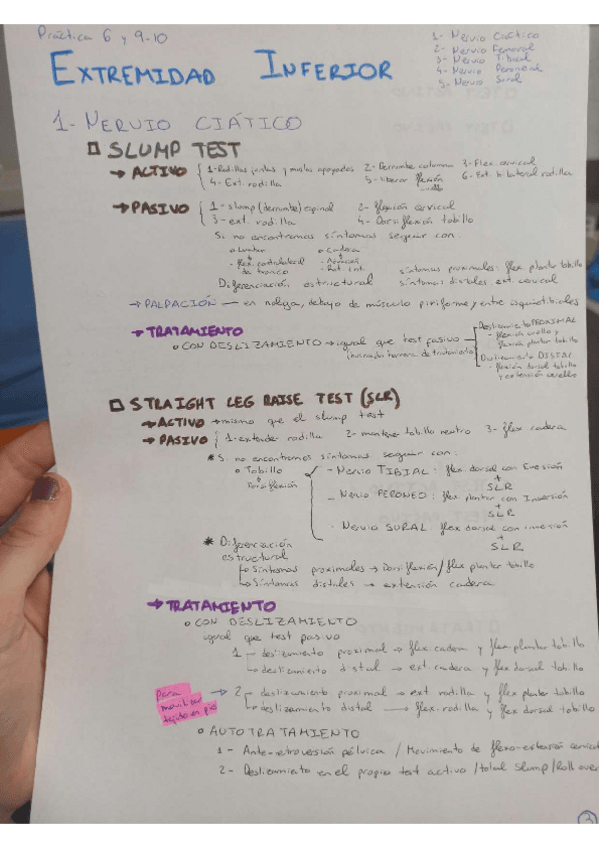 Práctica 6 y 9-10
1- Nervio Ciático
2- Nervio Femoral
3- Nervio Tibial
4- Nervio Peroneal
5- Nervio Sural
EXTREMIDAD INFERIOR
1- NERVIO CIÁTICO
SLUMP TEST
→ ACTIVO 1- Rodillas juntas y muslos apoyados 2- Derrumbe columna 3- Flex. cervical
4- Ext. rodilla 5- liberar flexión cuello 6- Ext. bilateral rodilla
→ PASIVO 1- slump (derrumbe) espinal 2- flexión cervical
3- ext. rodilla 4- Dorsiflexión tobillo
Si no encontramos síntomas seguir con:
Lumbar Cadera
- flex. contralateral de tronco - Rot. int.
Diferenciación estructural síntomas proximales: flex. plantar tobillo
síntomas distales: ext. cervical
→ PALPACIÓN — en nalga, debajo de músculo piriforme y entre isquiotibiales
→ TRATAMIENTO
CON DESLIZAMIENTO → igual que test pasivo
Deslizamiento PROXIMAL
- flexión cuello y flexión plantar tobillo
Deslizamiento DISTAL
- flexión dorsal tobillo y extensión cuello
STRAIGHT LEG RAISE TEST (SLR)
→ ACTIVO → mismo que el slump test
→ PASIVO 1- extender rodilla 2- mantener tobillo neutro 3- flex cadera
* Si no encontramos síntomas seguir con:
Tobillo
Dorsiflexión
- Nervio TIBIAL: flex. dorsal con Eversión + SLR
- Nervio PERONEO: flex plantar con Inversión + SLR
- Nervio SURAL flex dorsal con inversión + SLR
* Diferenciación estructural
Síntomas proximales → Dorsiflexión/flex plantar tobillo
Síntomas distales → extensión cadera
→ TRATAMIENTO
CON DESLIZAMIENTO
igual que test pasivo
1 deslizamiento proximal → flex. cadera y flex plantar tobillo
deslizamiento distal → ext. cadera y flex dorsal tobillo
para movilizar tejido en pie → 2 deslizamiento proximal → ext. rodilla y flex plantar tobillo
deslizamiento distal → flex. rodilla y flex dorsal tobillo
AUTOTRATAMIENTO
1- Ante-retroversión pélvica / Movimiento de flexo-extensión cervical
2- Deslizamiento en el propio test activo / total Slump / Roll over
3